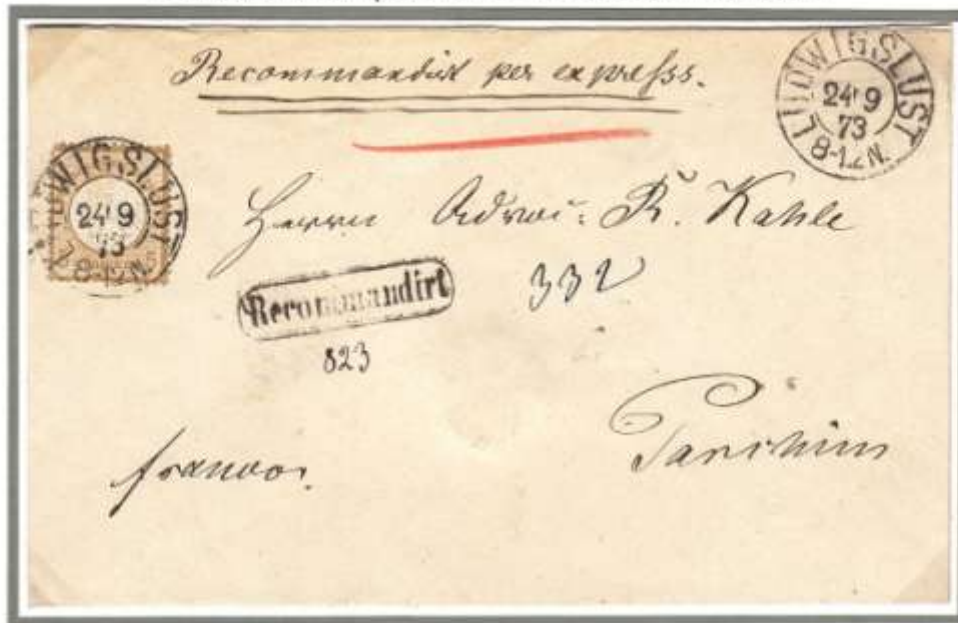 Recommandirt per expreſss.
LUDWIGSLUST
24 9
73
8-12 N.
LUDWIGSLUST
24 9
73
8-12 N.
Herrn Advoc: R. Kahle
332
Recommandirt
823
Parchim
franco.